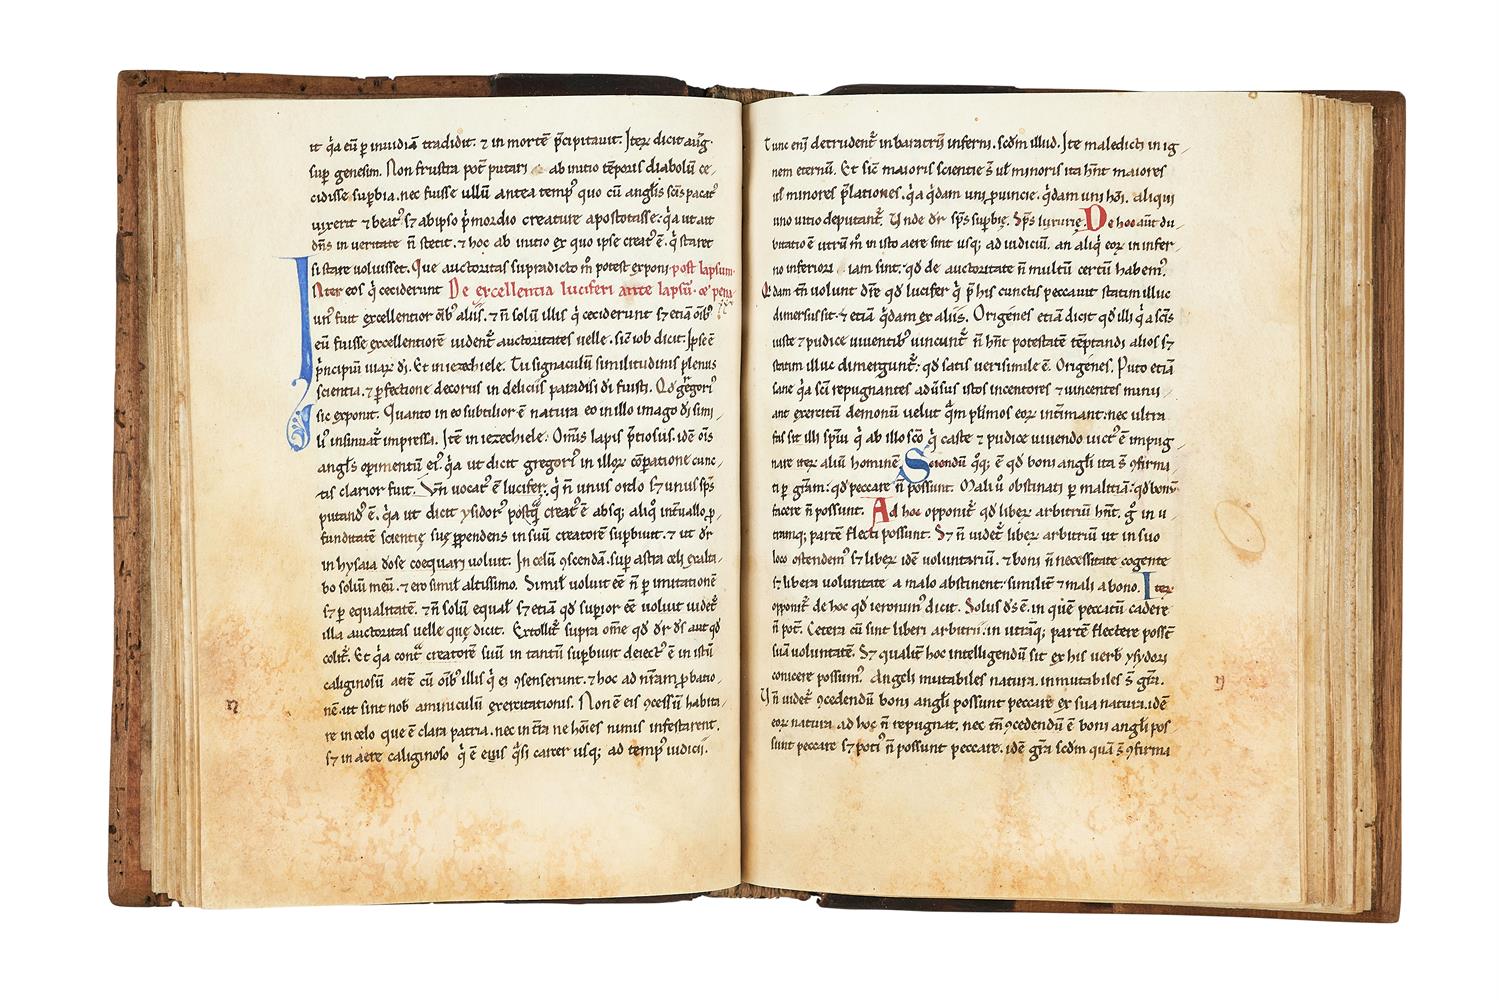 it q̃a eū p̱ inuidiā tradidit. ⁊ in mortē p̃cipitauit. Iteꝝ dicit aug̃.
sup̱ genesim. Non frustra pot̃ putari ab initio tēporis diabolū ce-
cidisse sup̱bia. nec fuisse ullū antea temp᷒ quo cū angl̃is sc̄is pacat᷒
uixerit ⁊ beat᷒ sꝫ ab ipso p̃mordio creature apostotasse. q̃a ut ait
dñs in ueritate ñ stetit. ⁊ hoc ab initio ex quo ipse creat᷒ ē. q̃ staret
si stare uoluisset. Que auctoritas supradicto m̊ potest exponi. post lapsum.
Inter eos q̃ ceciderunt De excellentia luciferi ante lapsū. ⁊ de pena
un᷒ fuit excellentior oīb᷒ aliis. ⁊ ñ solū illis q̃ ceciderunt sꝫ etiā oīb᷒
eū fuisse excellentiorē uident᷑ auctoritates uelle. sic̄ iob dicit. Ipse ē
p̃ncipiū uiaꝝ dī. Et in iezechiele. Tu signaculū similitudinis plenus
scientia. ⁊ p̱fectione decorus in deliciis paradisi dī fuisti. Qd̄ gregori᷒
sic exponit. Quanto in eo subtilior ē natura eo in illo imago dī simi-
li᷒ insinuat᷑ impressa. Itē in iezechiele. Om̄is lapis p̃tiosus. idē om̄s
angl̃s operimentū ei᷒. q̃a ut dicit gregori᷒ in illoꝝ cōparatione cunc-
tis clarior fuit. Vñ uocat᷒ ē lucifer. q̃ ñ unus ordo sꝫ unus sp̄s
putand᷒ ē. q̃a ut dicit ysidor᷒ postq̃ creat᷒ ē absqꝫ aliq̊ int̃uallo p̱-
funditatē scientię suę p̱pendens in suū creatorē sup̱biuit. ⁊ ut dr̄
in hysaia dōse coequari uoluit. In celū ꝯscendā. sup̱ astra celi exalta-
bo soliū meū. ⁊ ero simil᷒ altissimo. Simil᷒ uoluit eē ñ p̱ imitationē
sꝫ p̱ equalitatē. ⁊ ñ solū equal᷒ sꝫ etiā qd̄ sup̱ior eē uoluit uidet᷑
illa auctoritas uelle que dicit. Extollit᷑ supra om̄e qd̄ dr̄ ds̄ aut qd̄
colit᷑. Et q̃a cont̃ creatorē suū in tantū sup̱biuit deiect᷒ ē in istū
caliginosū aerē cū oīb᷒ illis q̃ ei ꝯsenserunt. ⁊ hoc ad nr̃am p̱batio-
nē. ut sint nob̄ aminiculū exercitationis. Non ē eis ꝯcessū habita-
re in celo que ē clara patria. nec in t̃ra ne hōies nimis infestarent.
sꝫ in aere caliginoso q̃ ē eius q̃si carcer usqꝫ ad temp᷒ iudicii.
n
Tunc eni᷒ detrudent᷑ in baratrū inferni. scd̄m illud. Ite maledicti in ig-
nem eternū. Et sic̄ maioris scientie s̄ ul̄ minoris ita hn̄t maiores
ul̄ minores p̃lationes. q̃a q̃dam uni p̱uincie. q̃dam uni hōi. aliqui
uno uitio deputant᷑. Vnde dr̄ sp̄s sup̱bię. sp̄s luxurię. De hoc aūt du-
bitatio ē utrū m̊ in isto aere sint usqꝫ ad iudiciū. an aliq̃ eoꝝ in infer-
no inferiori iam sint. qd̄ de auctoritate ñ multū certū habem᷒.
Q̃dam tn̄ uolunt dic̄re qd̄ lucifer q̃ p̃ his cunctis peccauit statim illuc
dimersus sit. ⁊ etiā q̃dam ex aliis. Origenes etiā dicit qd̄ illi q̃ a sc̄is
iuste ⁊ pudice uiuentib᷒ uincunt᷑ ñ hn̄t potestatē tēptandi alios sꝫ
statim illuc dimergunt᷑. qd̄ satis uerisimile ē. Origenes. Puto etiā
sane q̃a sc̄i repugnantes adũsus istos incentores ⁊ uincentes minu-
ant exercitū demonū uelut q̃m plīmos eoꝝ int̃imant. nec ultra
fas sit illi sp̄ui q̃ ab illo sc̄o q̃ caste ⁊ pudice uiuendo uict᷒ ē impug-
nare iteꝝ aliū hominē. Sciendū q̊qꝫ ē qd̄ boni angl̃i ita s̄ ꝯfirma-
ti p̱ gr̃am. qd̄ peccare ñ possunt. Mali ũ obstinati p̱ malitiā. qd̄ bonū
facere ñ possunt. Ad hoc opponit᷑ qd̄ liberꝝ arbitriū hn̄t. g̊ in u-
tramqꝫ partē flecti possunt. Sꝫ ñ uidet᷑ liberꝝ arbitriū ut in suo
loco ostendem᷒ sꝫ liberꝝ idē uoluntariū. ⁊ boni ñ necessitate cogente
sꝫ libera uoluntate a malo abstinent. similit̃ ⁊ mali a bono. Iteꝝ
opponit᷑ de hoc qd̄ ieronim᷒ dicit. Solus ds̄ ē. in quē peccatū cadere
ñ pot̃. Cetera cū sint liberi arbitrii. in utrāqꝫ partē flectere possē
suā uoluntatē. Sꝫ qualit̃ hoc intelligendū sit ex his uerb᷒ ysydori
conicere possum᷒. Angeli mutabiles natura. inmutabiles s̄ gr̃a.
Vñ uidet᷑ ꝯcedendū boni angl̃i possunt peccare ex sua natura. idē
eoꝝ natura ad hoc ñ repugnat. nec tn̄ ꝯcedendū ē boni angl̃i pos-
sunt peccare sꝫ poti᷒ ñ possunt peccare. idē gr̃a scd̄m quā s̄ ꝯfirma